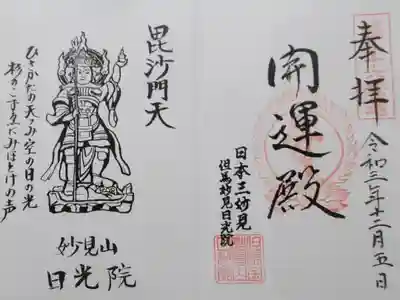 奉拝
令和三年十二月五日
開運殿
日本三妙見
但馬妙見日光院
毘沙門天
ひさかたの天つみ空の日の光
杉のこずえにみほとけの声
妙見山
日光院